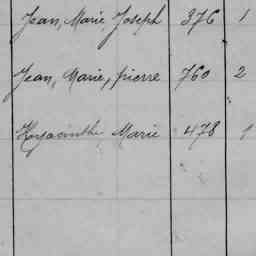 Jean, Marie Joseph 376 1
Jean, Marie, pierre 760 2
Hyacinthe Marie 478 1